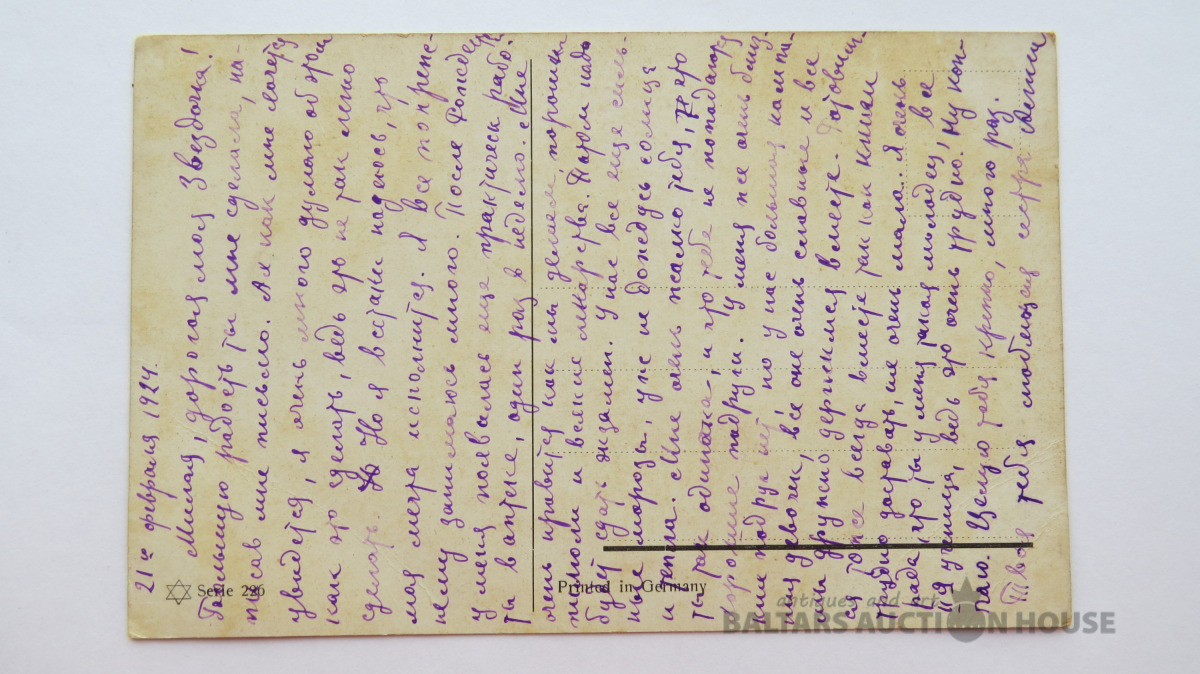 21го февраля 1924.
Милая, дорогая моя Звездочка!
Большую радость ты мне сделала, на-
писав мне письмо. Ах как мне хочется
увидется, я очень много думаю об этом
как это сделать, ведь это не так легко
сделать. Но я всетаки надеюсь, что
моя мечта исполнится. Я все попреж-
нему занимаюсь много. После Рождест.
у меня появилась еще практическ. рабо-
ты в аптеке, один раз в неделю. Мне
очень нравится как мы делаем порошки
пилюли и всякие лекарства. Потом надо
будет сдать экзамен. У нас все еще силь-
ные морозы, уже не дождусь солнца
и тепла. Мне очень жалко тебя, что
ты так одинока, и что тебе не попадают
хорошие подруги. У меня же очень близ-
кие подруг нет, но у нас большая кампа-
ния девочек, все оне очень славные и все
мы дружно держимся вместе. Готовим-
ся тоже всегда вместе так как книги
трудно доставать, их очень мало. Я очень
рада, что ты у меня такая молодец, все
ты ученица, ведь это очень трудно. Ну кон-
чаю. Целую тебя крепко, много раз.
Твоя тебя любящая сестра
Serie 226
Printed in Germany
antiques and art
BALTARS AUCTION HOUSE